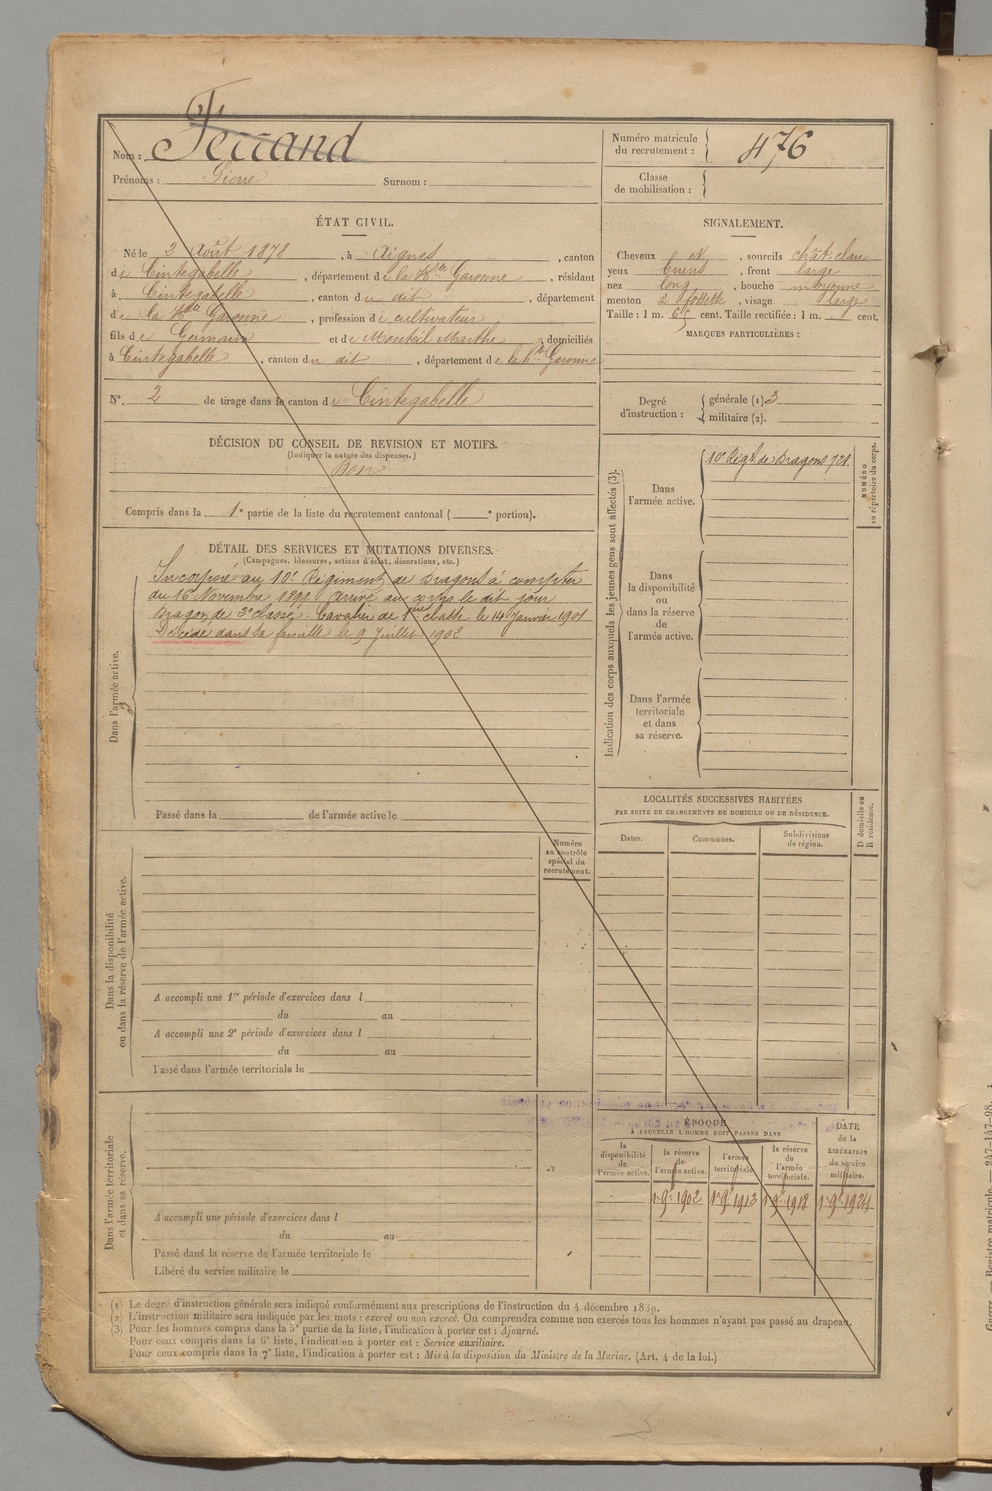 Nom : Ferrand
Prénoms : Pierre Surnom :
Numéro matricule du recrutement : 476
Classe de mobilisation :
ÉTAT CIVIL.
Né le 2 Août 1878, à Aignes, canton
de Cintegabelle, département de la Hte Garonne, résidant
à Cintegabelle, canton du dit, département
de la Hte Garonne, profession de cultivateur
fils de Germain et de Monteil Marthe, domiciliés
à Cintegabelle, canton du dit, département de la Hte Garonne
N°. 2 de tirage dans le canton de Cintegabelle
SIGNALEMENT.
Cheveux et, sourcils chât. clair
yeux bruns, front large
nez long, bouche moyenne
menton à fossette, visage large
Taille : 1 m. 65 cent. Taille rectifiée : 1 m. cent.
MARQUES PARTICULIÈRES :
Degré d'instruction : générale (1) 3
militaire (2).
DÉCISION DU CONSEIL DE REVISION ET MOTIFS.
(Indiquer la nature des dispenses.)
Bon
Compris dans la 1e partie de la liste du recrutement cantonal ( e portion).
DÉTAIL DES SERVICES ET MUTATIONS DIVERSES.
(Campagnes, blessures, actions d'éclat, décorations, etc.)
Dans l'armée active.
Incorporé au 10e Régiment de Dragons à compter
du 16 Novembre 1899. Arrivé au corps le dit jour
Dragon de 2e classe. Cavalier de 1ère classe le 14 Janvier 1901
Décédé dans sa famille le 9 Juillet 1902
Passé dans la de l'armée active le
Indication des corps auxquels les jeunes gens sont affectés (3).
Dans l'armée active.
10e Regt. de Dragons 721
NUMÉRO au répertoire du corps.
Dans la disponibilité ou dans la réserve de l'armée active.
Dans l'armée territoriale et dans sa réserve.
LOCALITÉS SUCCESSIVES HABITÉES
PAR SUITE DE CHANGEMENTS DE DOMICILE OU DE RÉSIDENCE.
Dates. Communes. Subdivisions de région.
D domicile ou R résidence.
Dans la disponibilité ou dans la réserve de l'armée active.
Numéro au contrôle spécial du recrutement.
A accompli une 1re période d'exercices dans l
du au
A accompli une 2e période d'exercices dans l
du au
Passé dans l'armée territoriale le
Dans l'armée territoriale et dans sa réserve.
A accompli une période d'exercices dans l
du au
Passé dans la réserve de l'armée territoriale le
Libéré du service militaire le
ÉPOQUE
A LAQUELLE L'HOMME DOIT PASSER DANS
la disponibilité de l'armée active.
la réserve de l'armée active.
l'armée territoriale.
la réserve de l'armée territoriale.
DATE de la LIBÉRATION du service militaire.
1r 9e 1902 1r 9e 1912 1r 9e 1918 1r 9e 1924
(1) Le degré d'instruction générale sera indiqué conformément aux prescriptions de l'instruction du 4 décembre 1889.
(2) L'instruction militaire sera indiquée par les mots : exercé ou non exercé. On comprendra comme non exercés tous les hommes n'ayant pas passé au drapeau.
(3) Pour les hommes compris dans la 5e partie de la liste, l'indication à porter est : Ajourné.
Pour ceux compris dans la 6e liste, l'indication à porter est : Service auxiliaire.
Pour ceux compris dans la 7e liste, l'indication à porter est : Mis à la disposition du Ministre de la Marine. (Art. 4 de la loi.)
Guerre. — Registre matricule. — 247-147-98.